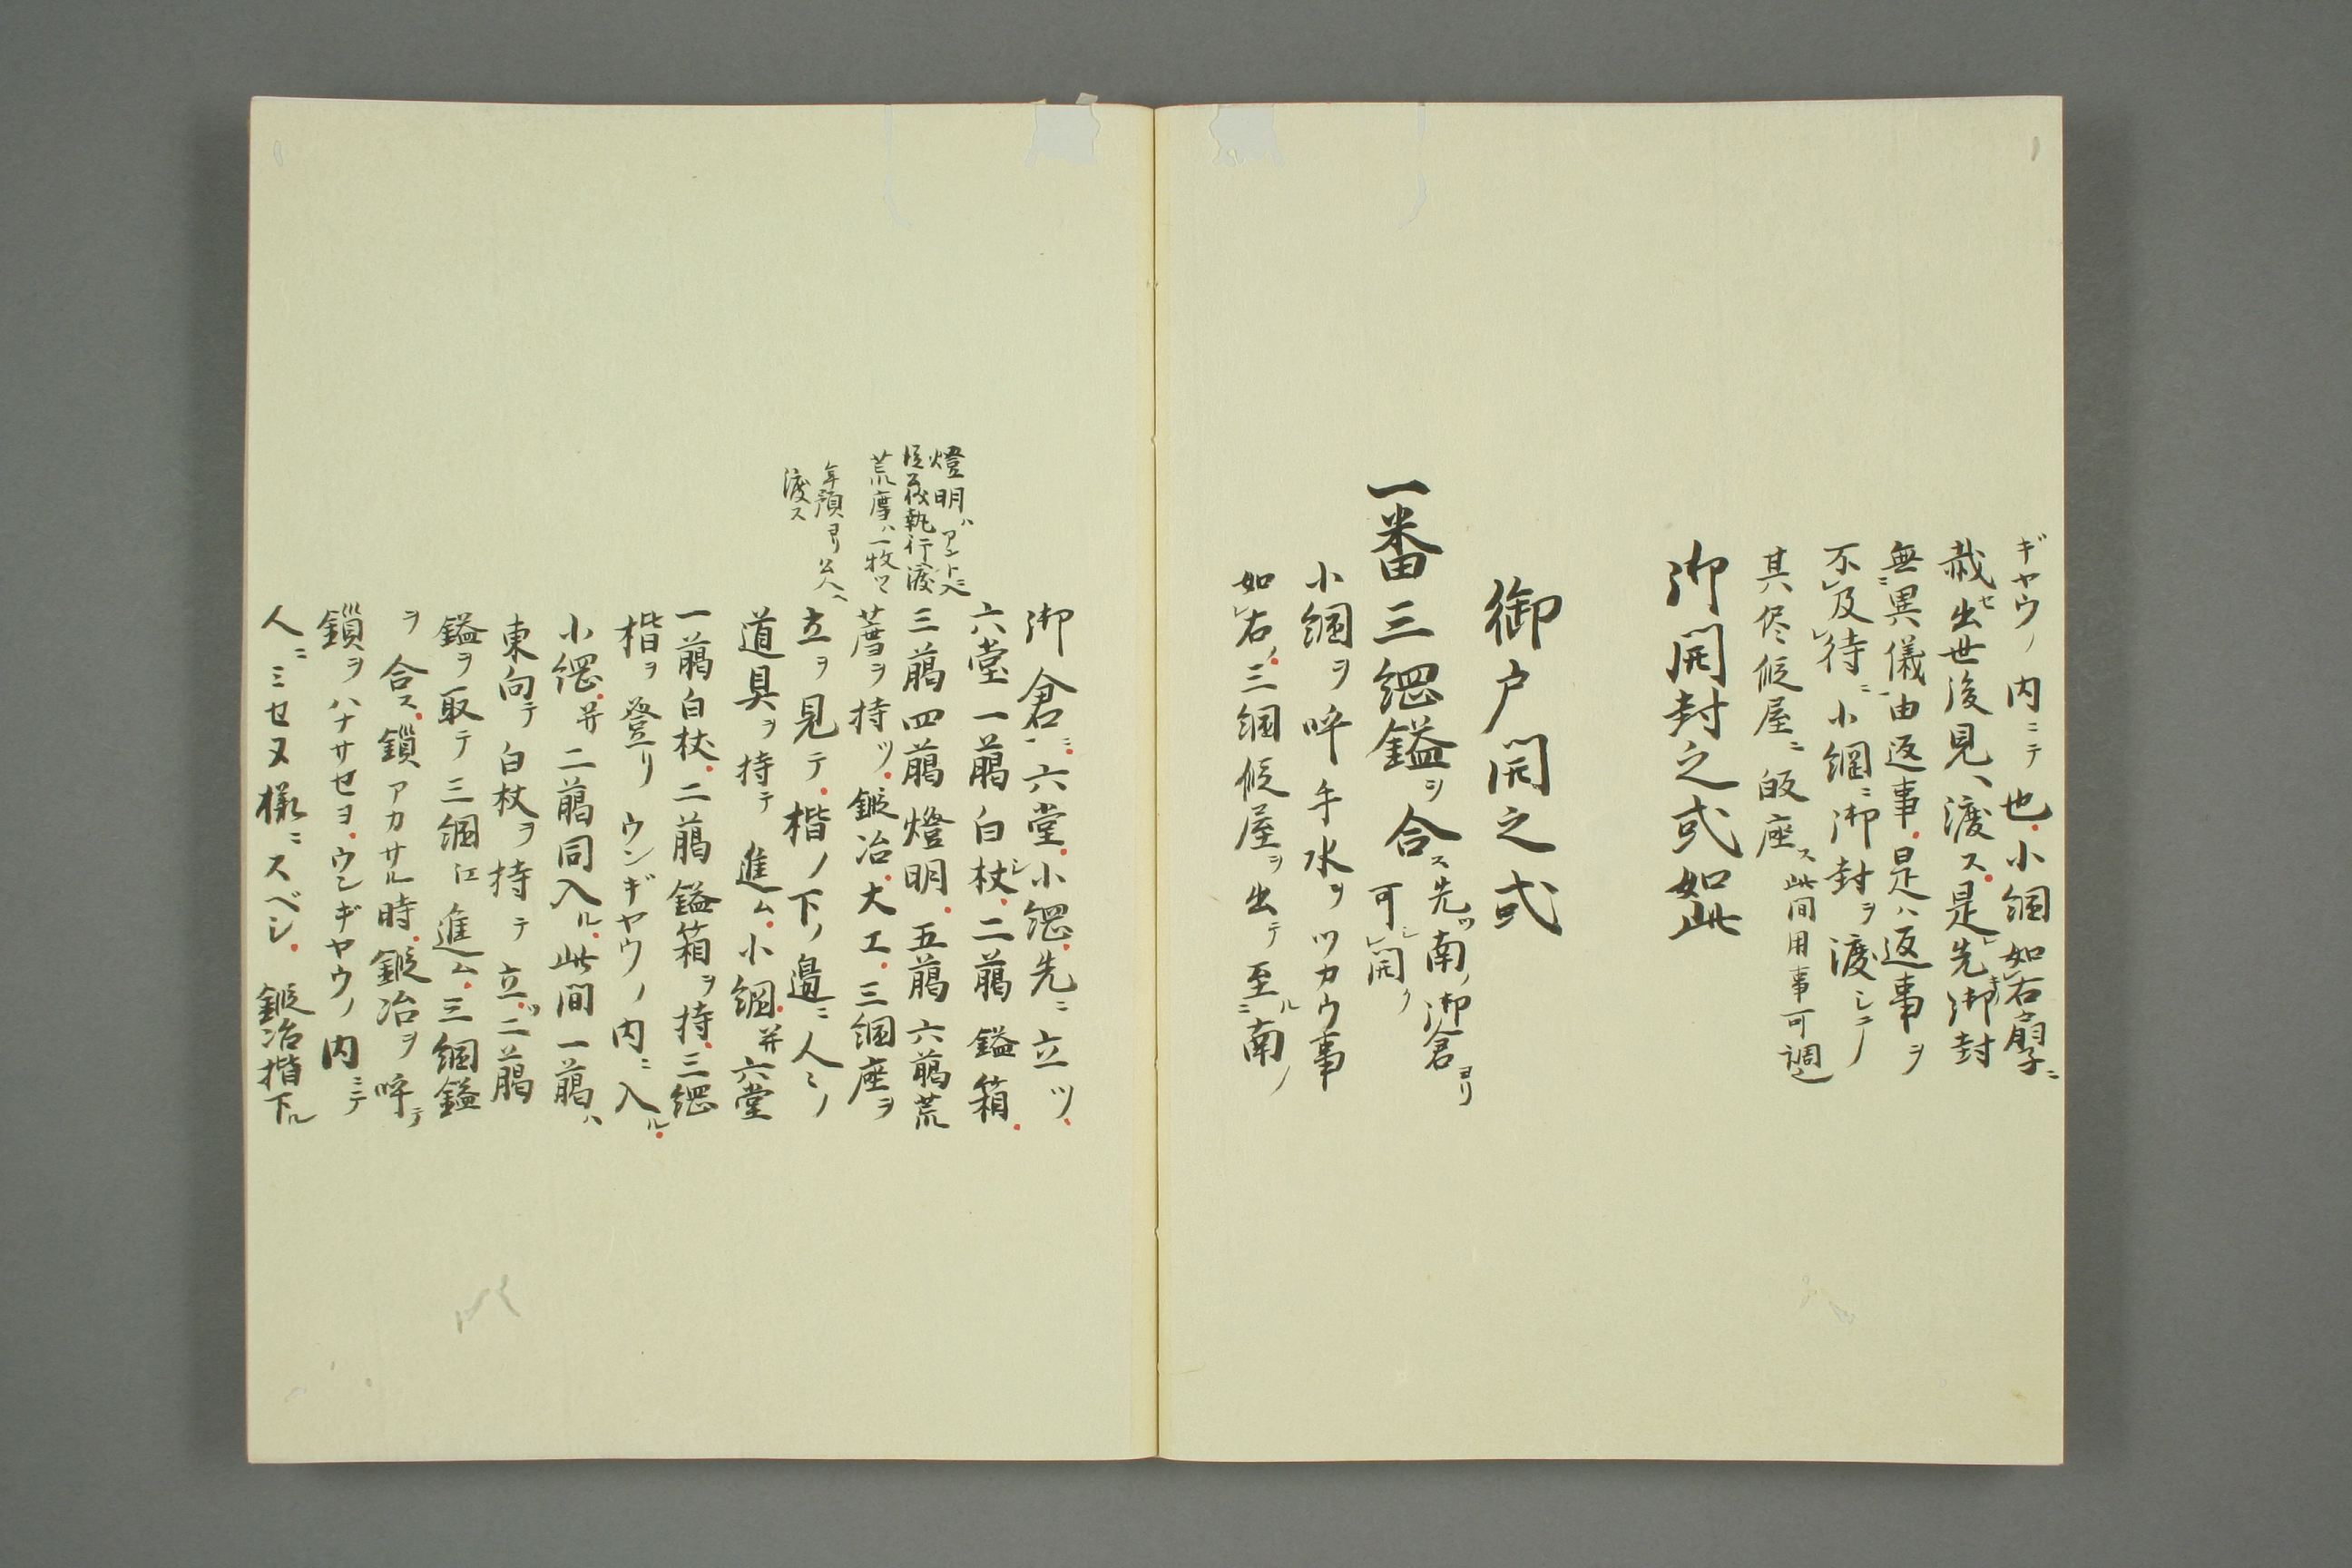 ギヤウノ内ニテ也小綱如右扇ニ
裁セ出世後見ヘ渡ス是先御封
無異儀由返事是ハ返事ヲ
不及待ニ小綱ニ御封ヲ渡シテノ
其侭仮屋ニ皈座ス此間用事可調之
御開封之式如此
御戸開之式
一番三綱鎰ヲ合ス先ツ南ノ御倉ヨリ
可開ク
小綱ヲ呼手水ヲツカウ事
如右三綱仮屋ヲ出テ至ル南ノ
御倉ニ六堂小綱先ニ立ツ
六堂一﨟白杖二﨟鎰箱
三﨟四﨟燈明五﨟六﨟荒
薦ヲ持ツ鍛冶大工三綱座ヲ
立ヲ見テ楷ノ下ノ邊ニ人ミノ
道具ヲ持テ進ム小綱并六堂
一﨟白杖二﨟鎰箱ヲ持三綱
楷ヲ登リウンギヤウノ内ニ入ル
小綱并二﨟同入ル此間一﨟ハ
東向テ白杖ヲ持テ立ツ二﨟
鎰ヲ取テ三綱江進ム三綱鎰
ヲ合ス鎖アカサル時鍛冶ヲ呼テ
鎖ヲハナサセヨウンギヤウノ内ニテ
人ニミセヌ様ニスベシ鍛冶楷下ル
燈明ハアントン入
従義執行渡
荒薦ハ一枚ツヽ
年預ヨリ公人ヘ
渡ス